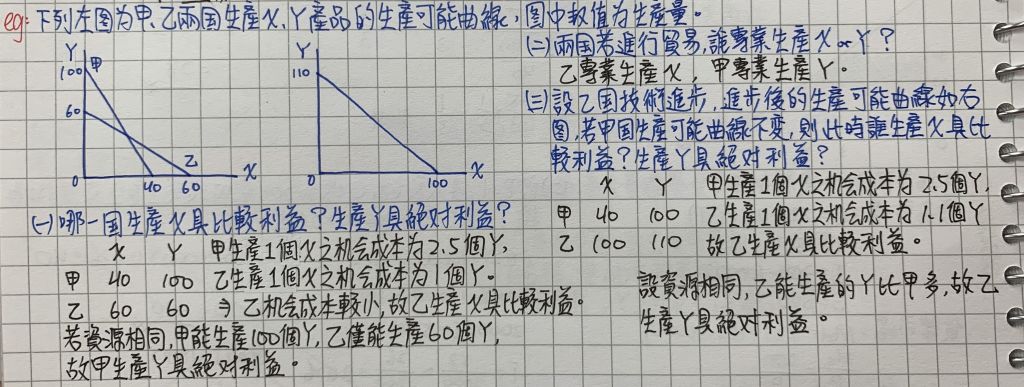 eg: 下列左图为甲、乙兩国生產X、Y產品的生產可能曲線，图中数值为生產量。
Y
100 甲
60
乙
0 40 60 X
Y
110
0 100 X
(一) 哪一国生產X具比較利益？生產Y具絕对利益？
X Y 甲生產1個X之机会成本为2.5個Y,
甲 40 100 乙生產1個X之机会成本为1個Y。
乙 60 60 ⇒ 乙机会成本較小,故乙生產X具比較利益。
若資源相同,甲能生產100個Y,乙僅能生產60個Y,
故甲生產Y具絕对利益。
(二) 兩国若進行貿易,誰專業生產X or Y？
乙專業生產X，甲專業生產Y。
(三) 設乙国技術進步,進步後的生產可能曲線如右
图,若甲国生產可能曲線不变,則此時誰生產X具比
較利益？生產Y具絕对利益？
X Y 甲生產1個X之机会成本为2.5個Y,
甲 40 100 乙生產1個X之机会成本为1.1個Y
乙 100 110 故乙生產X具比較利益。
設資源相同,乙能生產的Y比甲多,故乙
生產Y具絕对利益。